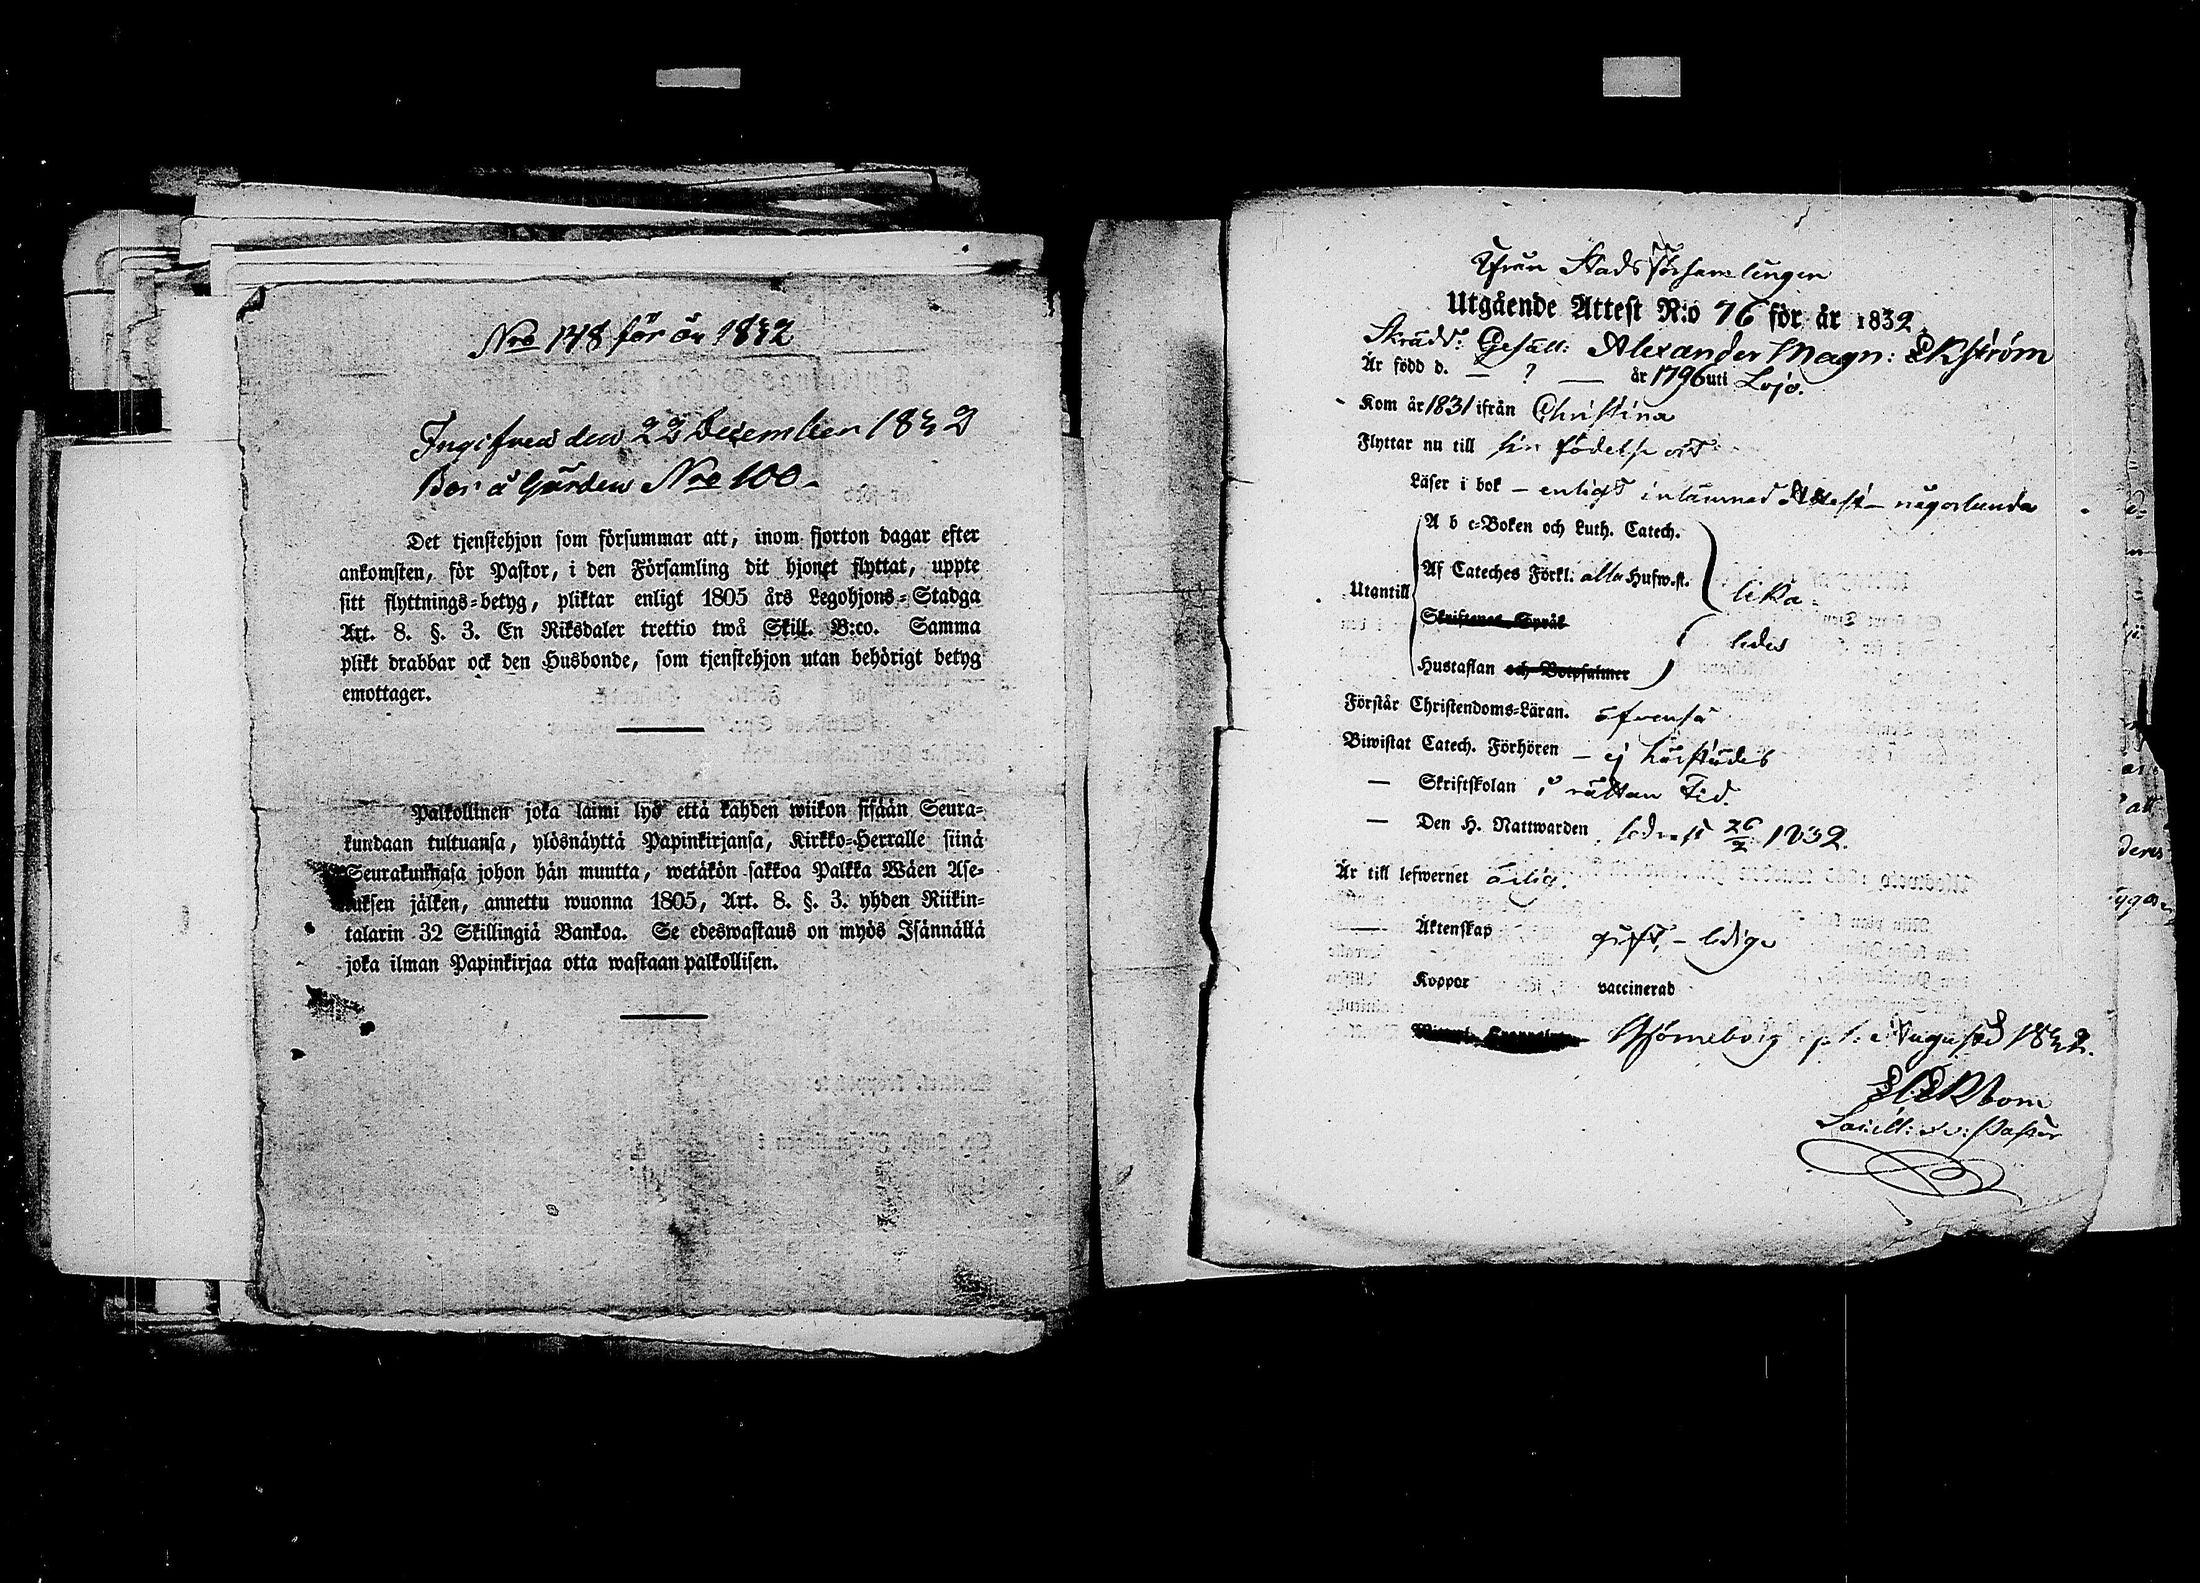 Nro 148 för år 1832
Ingifven den 22 December 1832
Bor å Gården Nro 100.
Det tjenstehjon som försummar att, inom fjorton dagar efter
ankomsten, för Pastor, i den Församling dit hjonet flyttat, uppte
sitt flyttnings-betyg, pliktar enligt 1805 års Legohjons-Stadga
Art. 8. §. 3. En Riksdaler trettio twå Skill. B:co. Samma
plikt drabbar ock den Husbonde, som tjenstehjon utan behörigt betyg
emottager.
Palkollinen joka laimi lyö että kahden wiikon sisään Seura-
kundaan tultuansa, ylösnäyttä Papinkirjansa, Kirkko-Herralle siinä
Seurakunnasa johon hän muutta, wetäkön sakkoa Palkka Wäen Ase-
tuksen jälken, annettu wuonna 1805, Art. 8. §. 3. yhden Riikin-
talarin 32 Skillingiä Bankoa. Se edeswastaus on myös Isännällä
joka ilman Papinkirjaa otta wastaan palkollisen.
Ifrån Stads Församlingen
Utgående Attest N:o 76 för år 1832
Skrädd: Gesäll: Alexander Magn: Ekström
Är född d. — ? — år 1796 uti Lojo.
Kom år 1831 ifrån Christina
Flyttar nu till sin födelse ort
Läser i bok – enligt inlämnad Attest – någorlunda
A b c-Boken och Luth. Catech.
Af Cateches Förkl: alla Husw.st.
lika
Utantill
Skriftenes Språk
ledes
Hustaflan och Botpsalmer
Förstår Christendoms-Läran. äfvenså
Biwistat Catech. Förhören – ej härstädes
— Skriftskolan i rättan Tid.
— Den H. Nattwarden sednast 26/2 1832.
Är till lefwernet ärlig.
— Äktenskap gift, – ledig
Koppor vaccinerad
Björneborg p. 1: Augusti 1832.
Ekbom
v: Pastor